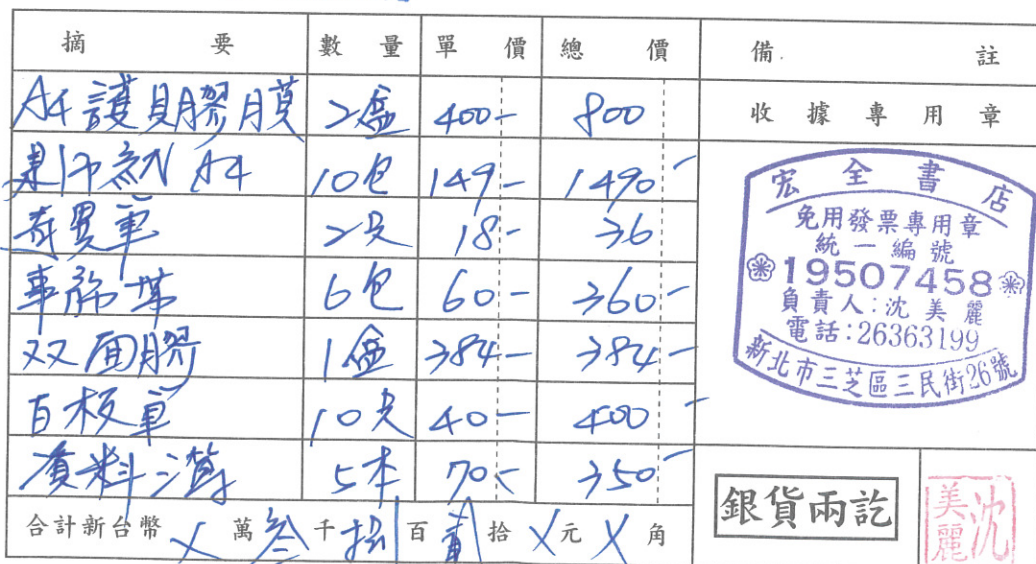 摘要 數量 單價 總價 備註
A4護貝膠膜 2盒 400- 800
收據專用章
影印紙 A4 10包 149- 1490-
奇異筆 2支 18- 36
事務 6包 60- 360-
双面膠 1盒 384- 384-
白板筆 10支 40- 400-
資料簿 5本 70- 350-
合計新台幣 X 萬 叁 千 捌 百 貳 拾 X 元 X 角
宏全書店
免用發票專用章
統一編號
19507458
負責人:沈美麗
電話:26363199
新北市三芝區三民街26號
銀貨兩訖
沈美麗